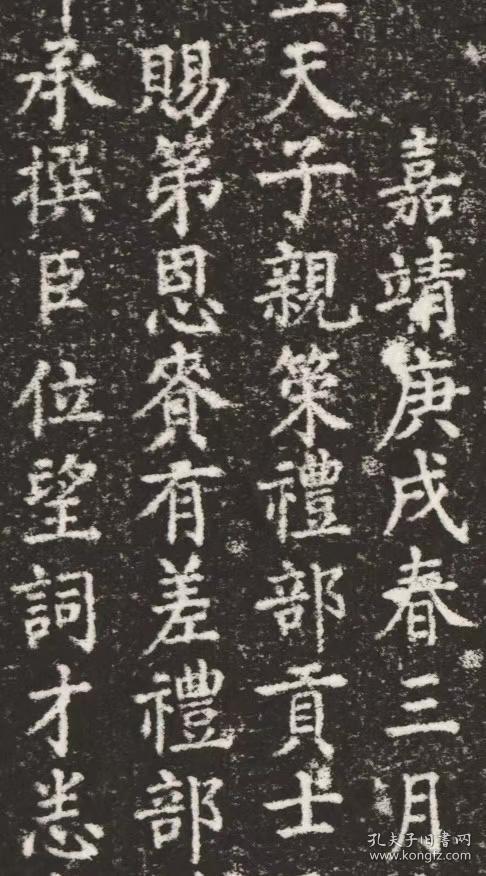 嘉靖庚戌春三月
天子親策禮部貢士
賜第恩賚有差禮部
承撰臣位望詞才悉
孔夫子旧书网
www.kongfz.com